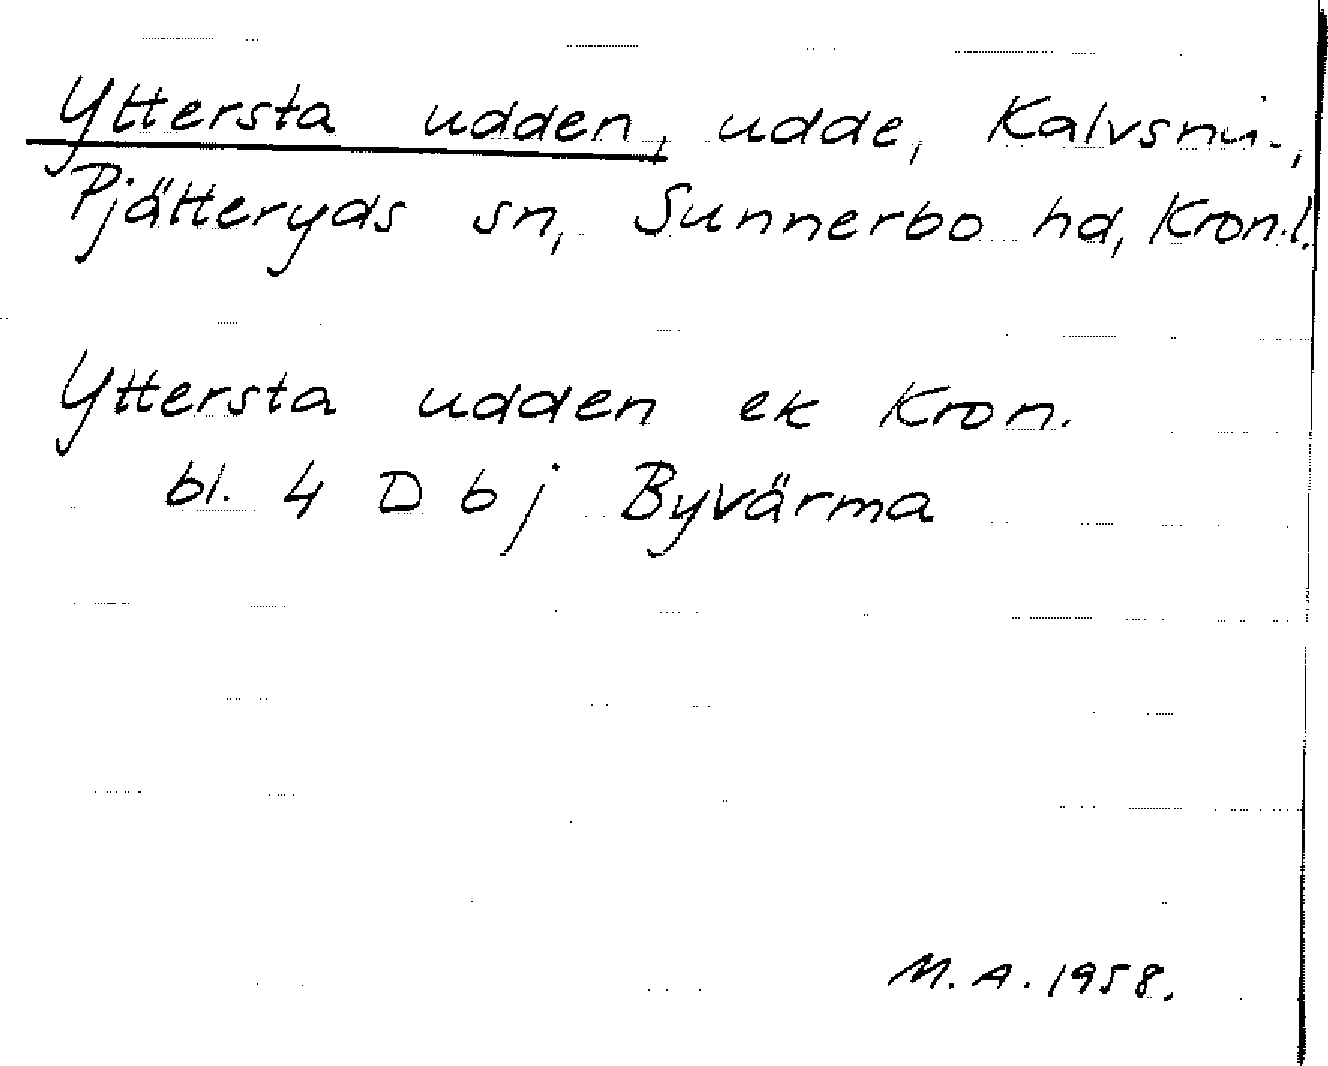 Yttersta udden, udde, Kalvsnä.,
Pjätteryds sn, Sunnerbo hd, Kron.l.
Yttersta udden ek Kron.
bl. 4 D b j Byvärma
M.A. 1958.